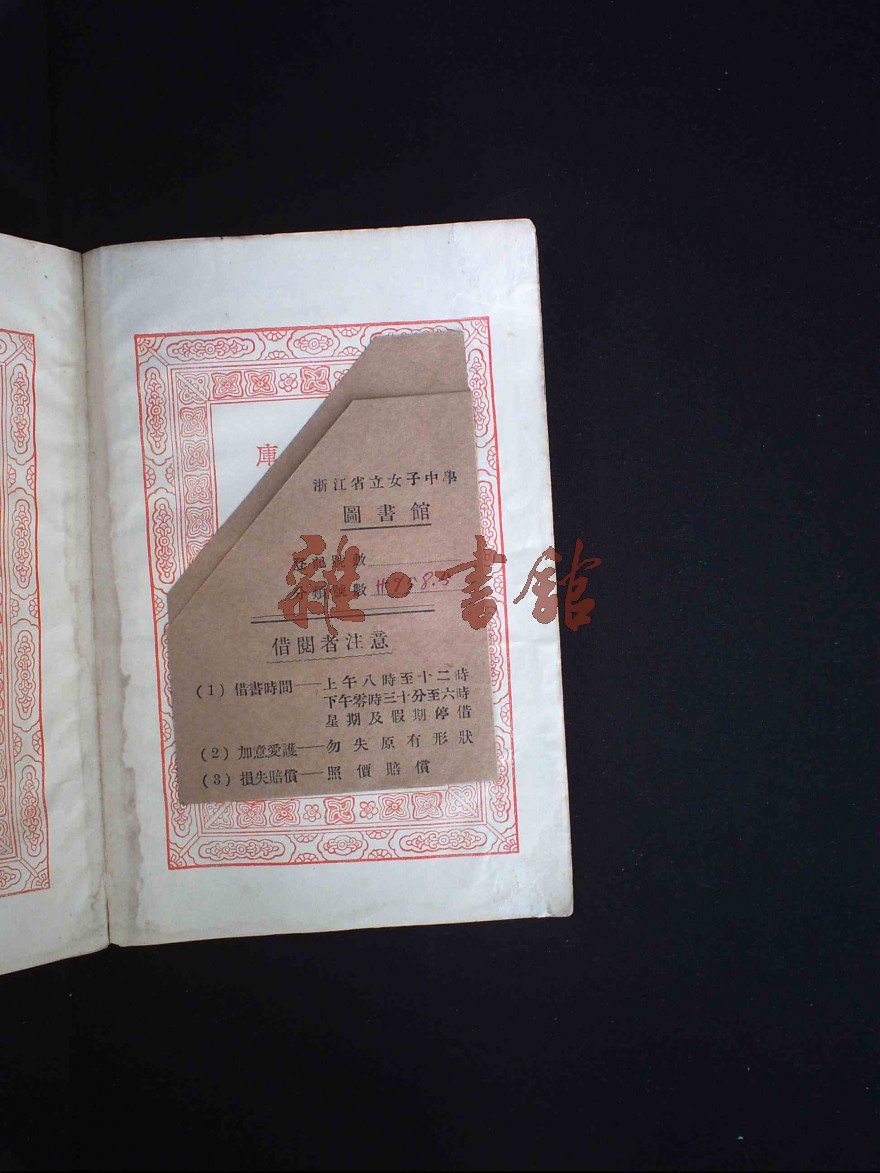 庫
浙江省立女子中學
圖書館
登記號數
分類號數
借閱者注意
(1) 借書時間——上午八時至十二時
下午零時三十分至六時
星期及假期停借
(2) 加意愛護——勿失原有形狀
(3) 損失賠償——照價賠償
雜·書館